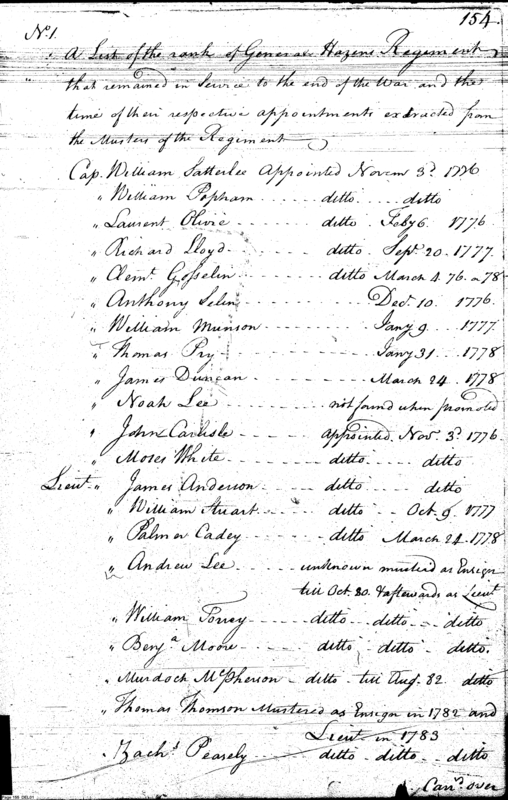 154.
No 1.
A List of the rank of General Hazens Regiment
that remained in Service to the end of the War and the
time of their respective appointments extracted from
the Musters of the Regiment
Cap. William Satterlee Appointed Novem 3d. 1776
" William Popham ditto ditto
" Laurent Olivie ditto Feby 6 1776
" Richard Lloyd ditto Sept. 20. 1777.
" Clemt. Gosselin ditto March 4. 76 or 78
" Anthony Selin Decr. 10. 1776.
" William Munson Jany 9 1777.
" Thomas Pry Jany 31 1778
" James Duncan March 24. 1778
" Noah Lee not found when promoted
" John Carlisle appointed Novr 3d. 1776.
" Moses White ditto ditto
Lieut. " James Anderson ditto ditto
" William Stuart ditto Oct. 9. 1777
" Palmer Cadey ditto March 24. 1778
" Andrew Lee unknown musterd as Ensign
till Oct. 80. & afterwards as Lieut
" William Torrey ditto ditto ditto
" Benja. Moore ditto ditto ditto.
" Murdoch McPherson ditto till Aug. 82 ditto
" Thomas Thomson Mustered as Ensign in 1782 and
Lieut in 1783
" Zachs Pearsely ditto ditto ditto
Carrd. over